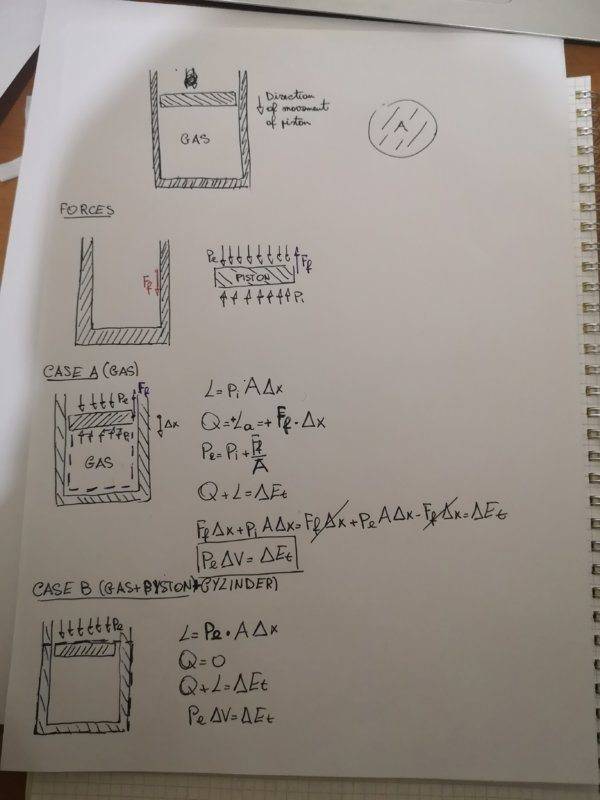 Direction
of movement
of piston
GAS
A
FORCES
Ff
Pe
Ff
PISTON
Pi
CASE A (GAS)
Ff
Pe
Δx
Pi
GAS
L = Pi A Δx
Q = +La = + Ff · Δx
Pe = Pi + Ff/A
Q + L = ΔEt
Ff Δx + Pi A Δx = Ff Δx + Pe A Δx - Ff Δx = ΔEt
Pe ΔV = ΔEt
CASE B (GAS+PYSTON+CYLINDER)
Pe
L = Pe · A Δx
Q = 0
Q + L = ΔEt
Pe ΔV = ΔEt